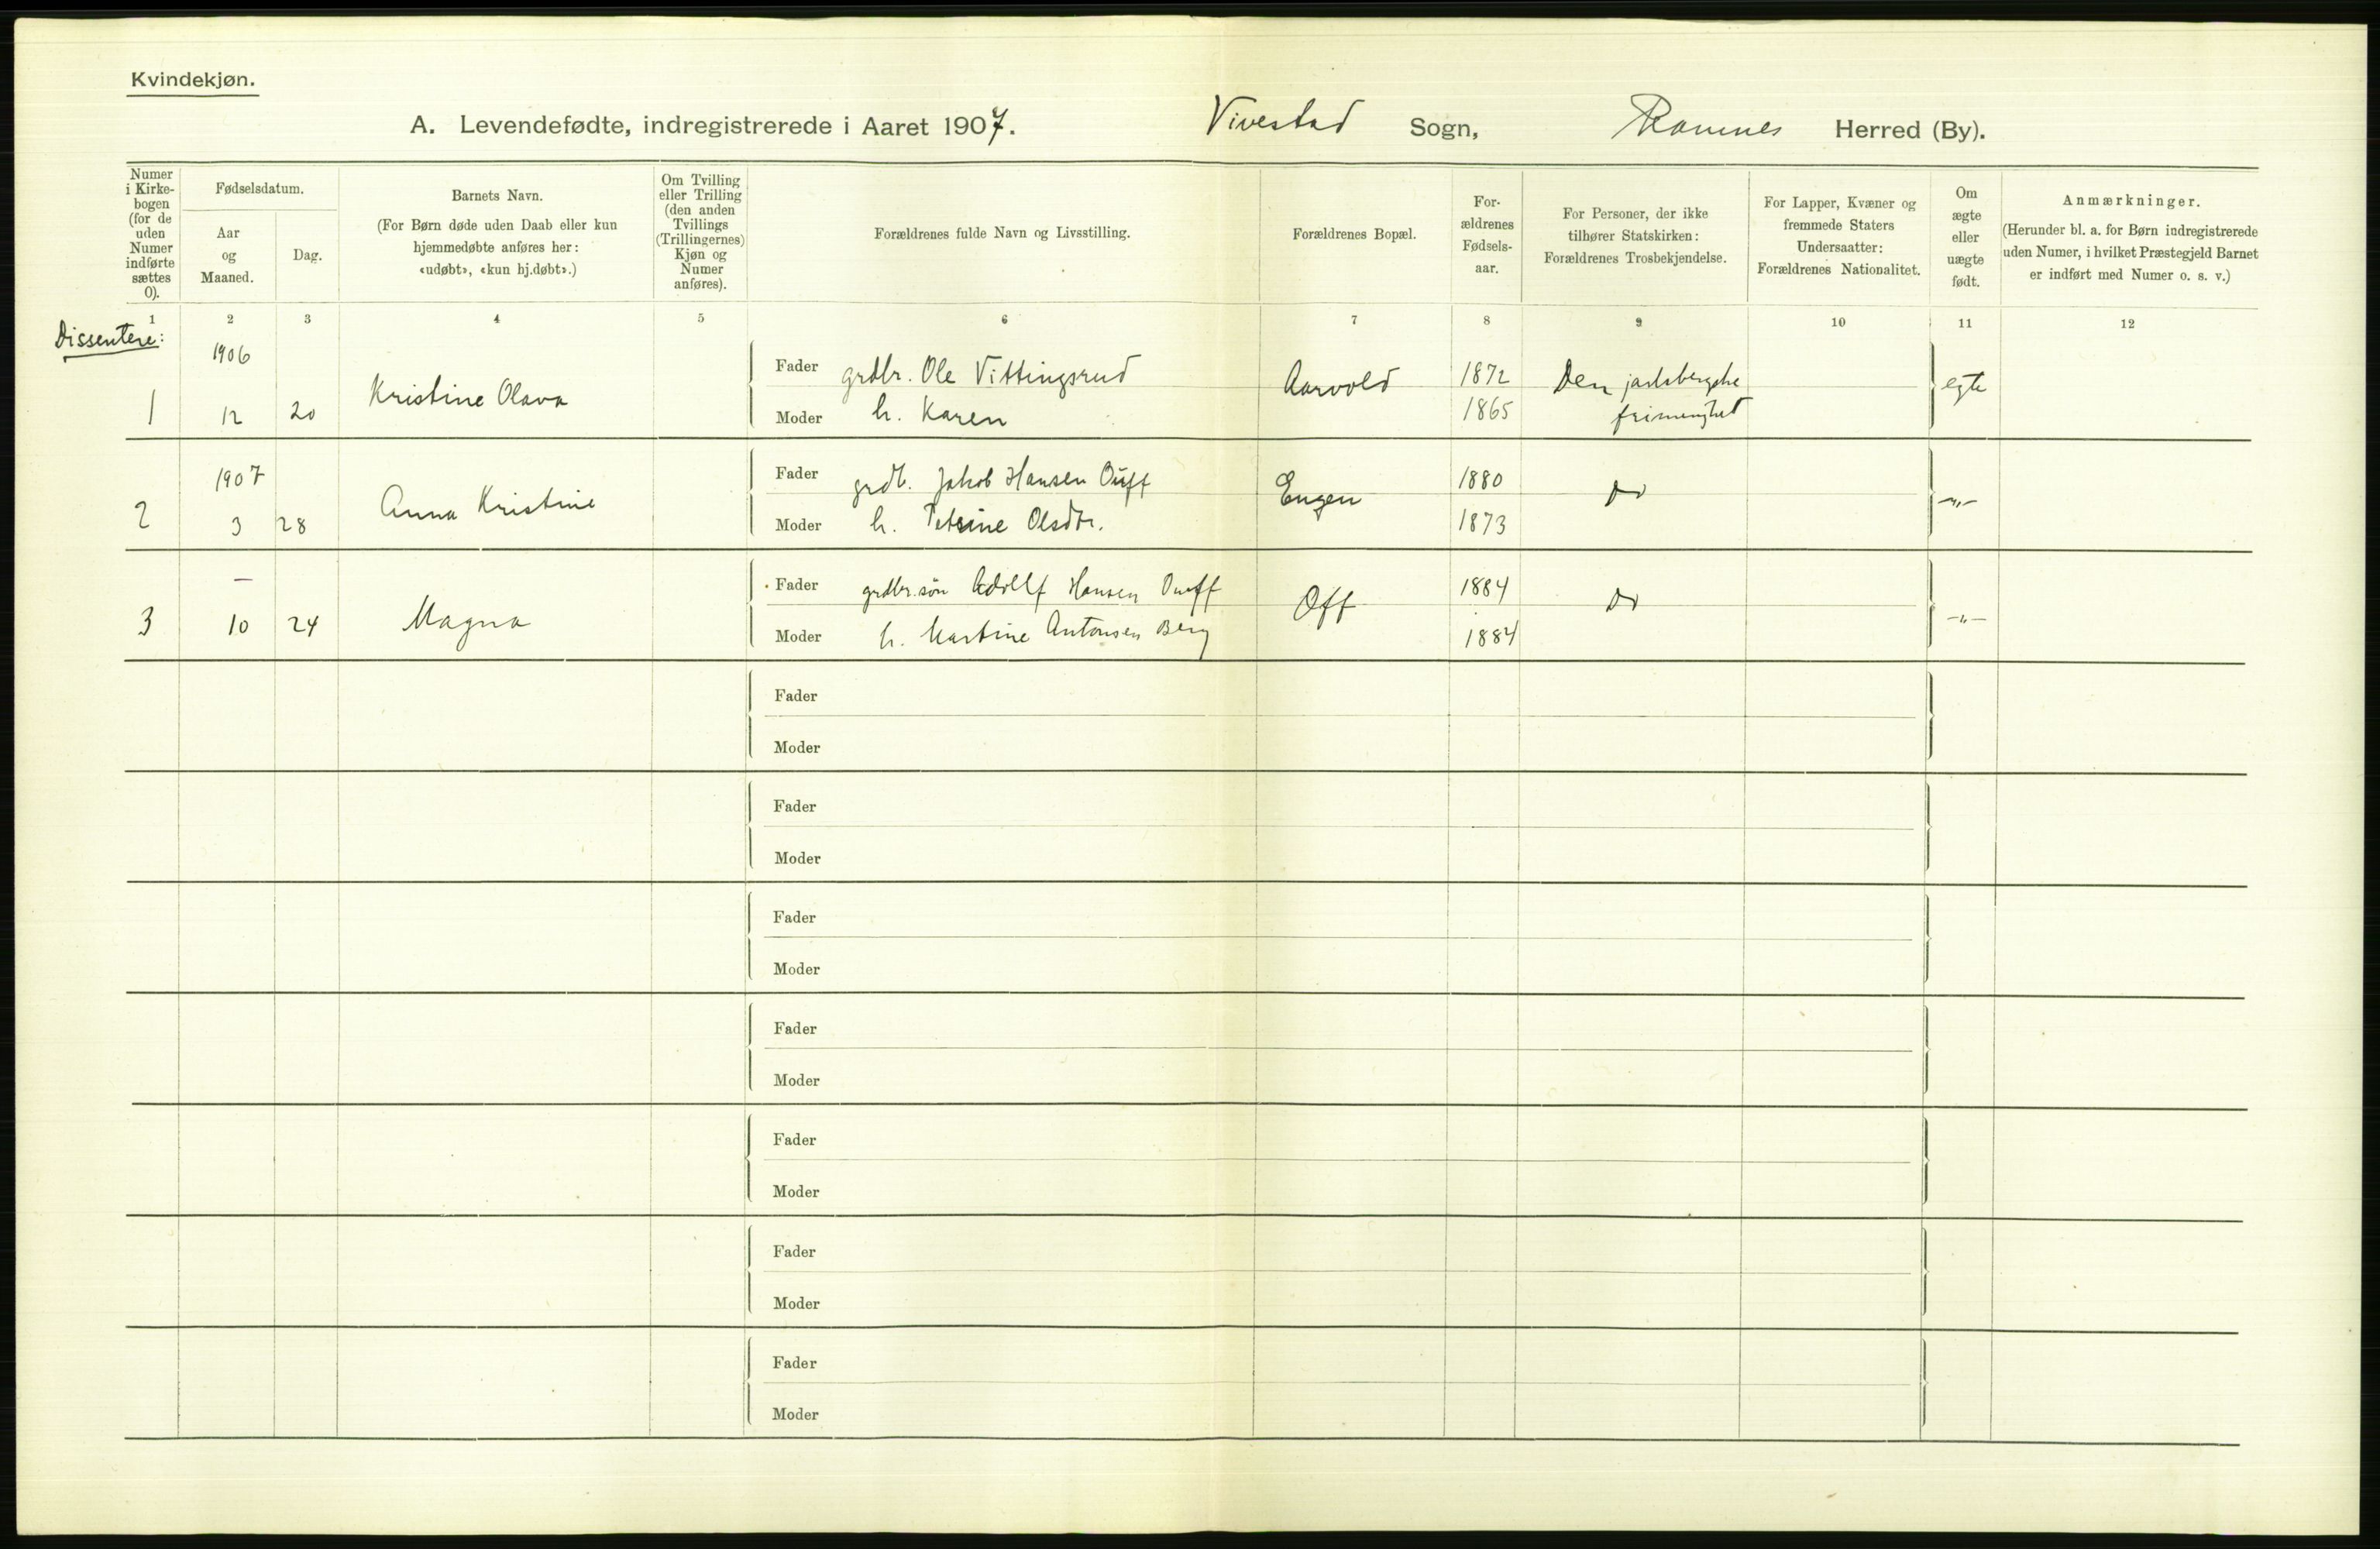 Kvindekjøn.
A. Levendefødte, indregistrerede i Aaret 1907. Vivestad Sogn, Ramnes Herred (By).
Numer i Kirkebogen (for de uden Numer indførte sættes 0).
Fødselsdatum.
Aar og Maaned.
Dag.
Barnets Navn.
(For Børn døde uden Daab eller kun
hjemmedøbte anføres her:
«udøbt», «kun hj.døbt».)
Om Tvilling
eller Trilling
(den anden
Tvillings
(Trillingernes)
Kjøn og
Numer
anføres).
Forældrenes fulde Navn og Livsstilling.
Forældrenes Bopæl.
For-
ældrenes
Fødsels-
aar.
For Personer, der ikke
tilhører Statskirken:
Forældrenes Trosbekjendelse.
For Lapper, Kvæner og
fremmede Staters
Undersaatter:
Forældrenes Nationalitet.
Om
ægte
eller
uægte
født.
Anmærkninger.
(Herunder bl. a. for Børn indregistrerede
uden Numer, i hvilket Præstegjeld Barnet
er indført med Numer o. s. v.)
1 2 3 4 5 6 7 8 9 10 11 12
Dissentere:
1906
Fader grdbr. Ole Vittingsrud Aarvold 1872 Den jarlsbergske egte
1 12 20 Kristine Olava Moder h. Karen 1865 frimenighed
1907
Fader grdb. Jakob Hansen Ouff Engen 1880 Do -„-
2 3 28 Anna Kristine Moder h. Petrine Olsdtr. 1873
—
Fader grdbr.søn Adolf Hansen Ouff Off 1884 Do -„-
3 10 24 Magna Moder h. Martine Antonsen Berg 1884
Fader
Moder
Fader
Moder
Fader
Moder
Fader
Moder
Fader
Moder
Fader
Moder
Fader
Moder